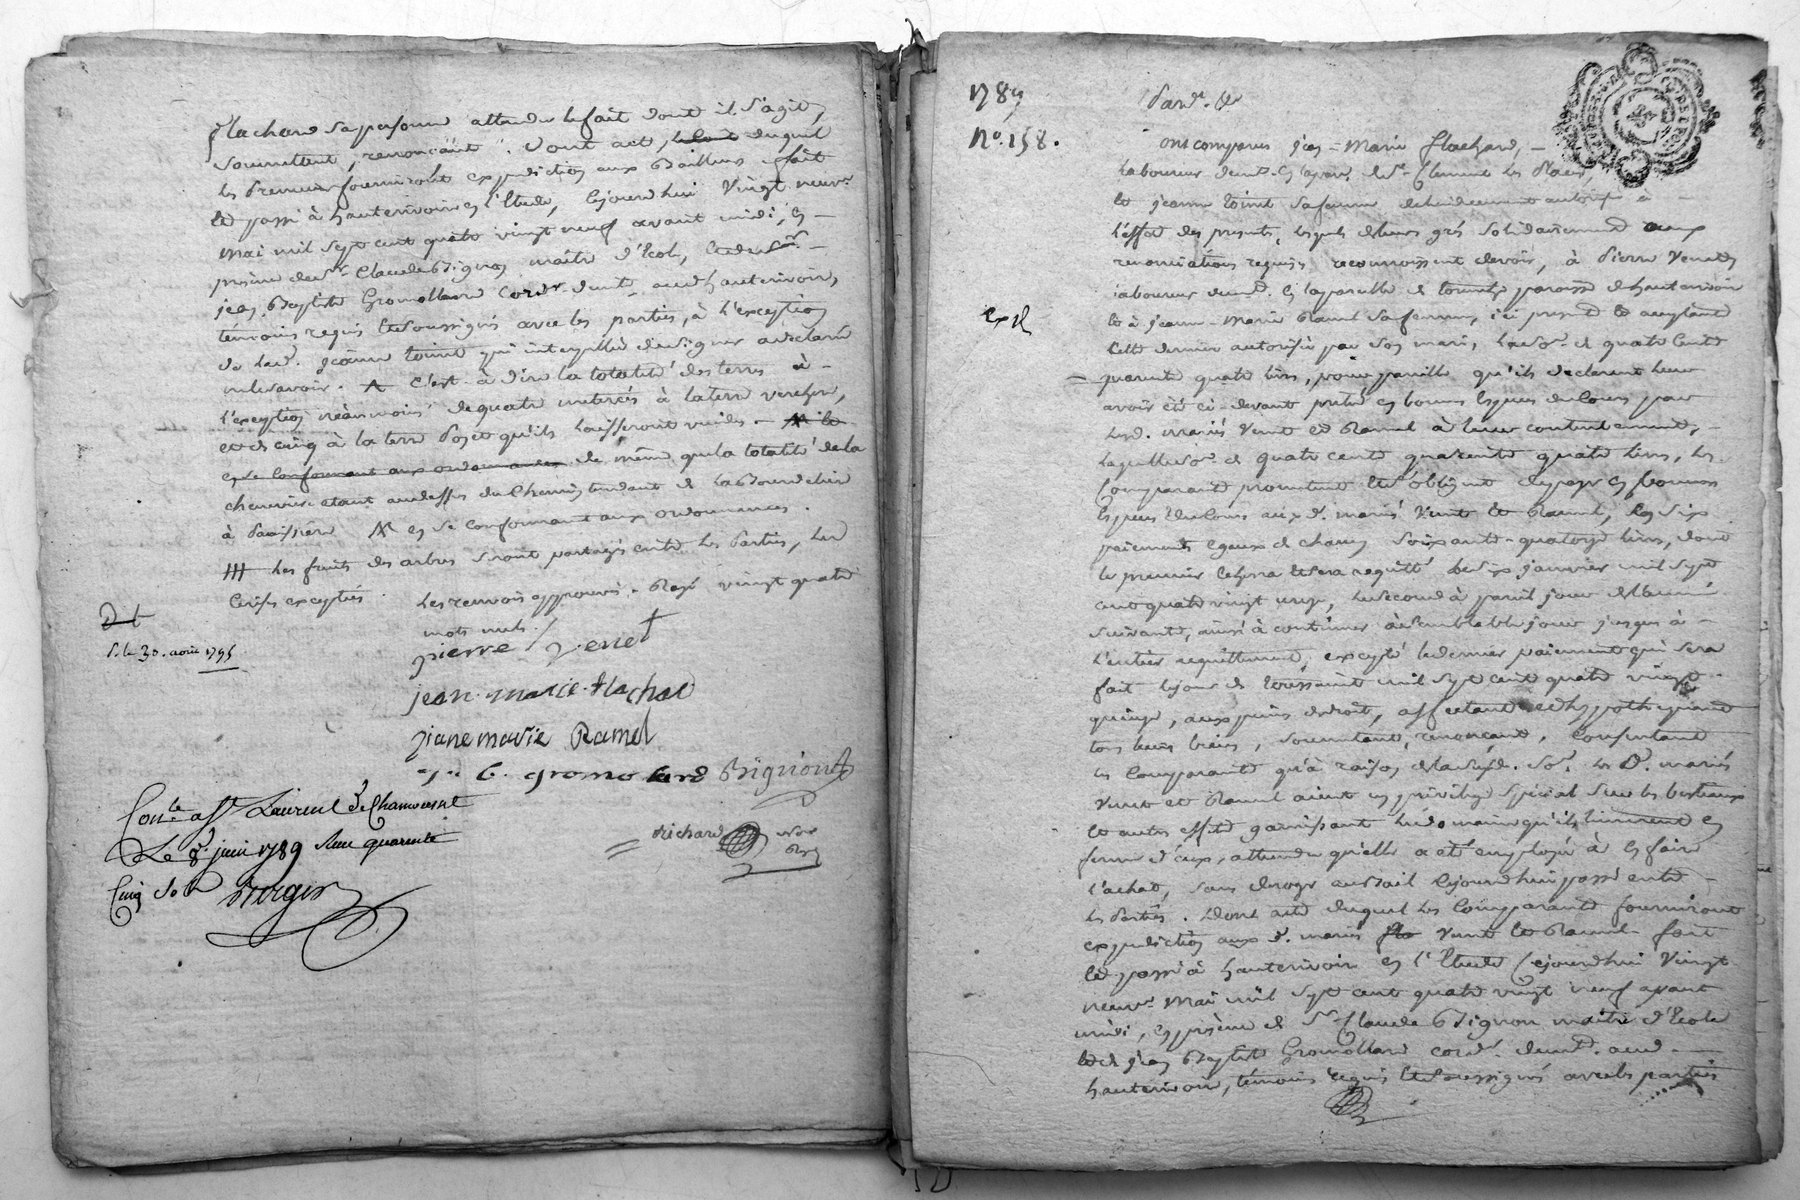 flachard sa personne attendu le fait dont il s'agit,
soumettent, renonçant &. Dont act, duquel
les preneurs fourniront expedition aux Bailleurs fait
et passé à hauterivoire en l'Etude, cejourdhui vingt neuve
mai mil sept cent quatre vingt neuf avant midi, en
présence de sr. Claude Bignon maître d'Ecole, et de sr.
jean Baptiste Gromollard cordr. demt. aud. hauterivoire,
témoins requis et soussignés avec les parties, à l'exception
de lad. jeanne toinet qui interpellée de signer a declaré
ne le savoir. c'est à dire la totalité des terres à
l'exception néanmoins de quatre meterés à la terre verchere,
et de cinq à la terre qu'ils laisseront vuides
en se conformant aux ordonnances de même que la totalité de la
cheneviere etant au dessus du Chemin tendant de la
à en se conformant aux ordonnances.
les fruits des arbres seront partagés entre les parties, les
Cerises exceptées. Les renvois approuvés. Rayé vingt quatre
mots nuls.
D t
d. le 30. août 1795
pierre Venet
jean marie flachat
jiane marie Ramel
j. B. gromolard Bignon
richard Nore
Roy
Conle. à St. Laurent de Chamousset
Le 8. juin 1789 Reçu quarante
Cinq sols Berger
1789
No. 158.
Pardt. &
Ont comparus jean-Marie flachard,
laboureur demt. en la par. de St. Clement les Places
et jeanne toinet sa femme de lui duement autorisée à
l'effet des presentes, lesquels de leurs grés solidairement aux
renonciations requises reconnoissent devoir, à Pierre Venet
laboureur demt. en la parcelle de paroisse d'hauterivoire
et à jeanne-Marie Ramel sa femme, ici present et acceptant
cette derniere autorisée par son mari, la so. de quatre Cents
exp
quarante quatre livres, pour pareille qu'ils declarent leur
avoir été ci-devant pretée en bonnes Especes de Cours par
lesd. mariés Venet et Ramel à leur contentement,
laquelle so. de quatre cents quarante quatre livres, les
Comparants promettent et s'obligent de payer en bonnes
Especes de Cours aux d. mariés Venet et Ramel, en six
paiements egaux de chacun soixante-quatorze livres, dont
le premier echera et sera acquitté le six janvier mil sept
cent quatre vingt onze, le second à pareil jour de l'année
suivante, ainsi à continuer à semblable jour jusques à
l'entier acquittement, excepté le dernier paiement qui sera
fait le jour de toussaint mil sept cent quatre vingt
quinze, aux peines de droit, affectant et hypothequant
tous leurs biens, soumettant, renonçant, Consentant
les Comparants qu'à raison de la susd. so. les d. mariés
Venet et Ramel aient un privilege special sur les bestiaux
et autres effets garnissant le domaine qu'ils tiennent en
ferme d'eux, attendu qu'elle a été employée à en faire
l'achat, sans deroger au bail cejourdhui passé entre
les Parties. Dont acte duquel les Comparants fourniront
expedition aux d. mariés Venet et Ramel. fait
et passé à hauterivoire en l'Etude cejourdhui Vingt
neuve. Mai mil sept cent quatre vingt neuf avant
midi, en présence de Sr. Claude Bignon maître d'Ecole
et de jean Baptiste Gromollard cordr. demt. aud.
hauterivoire, témoins requis et soussignés avec les parties